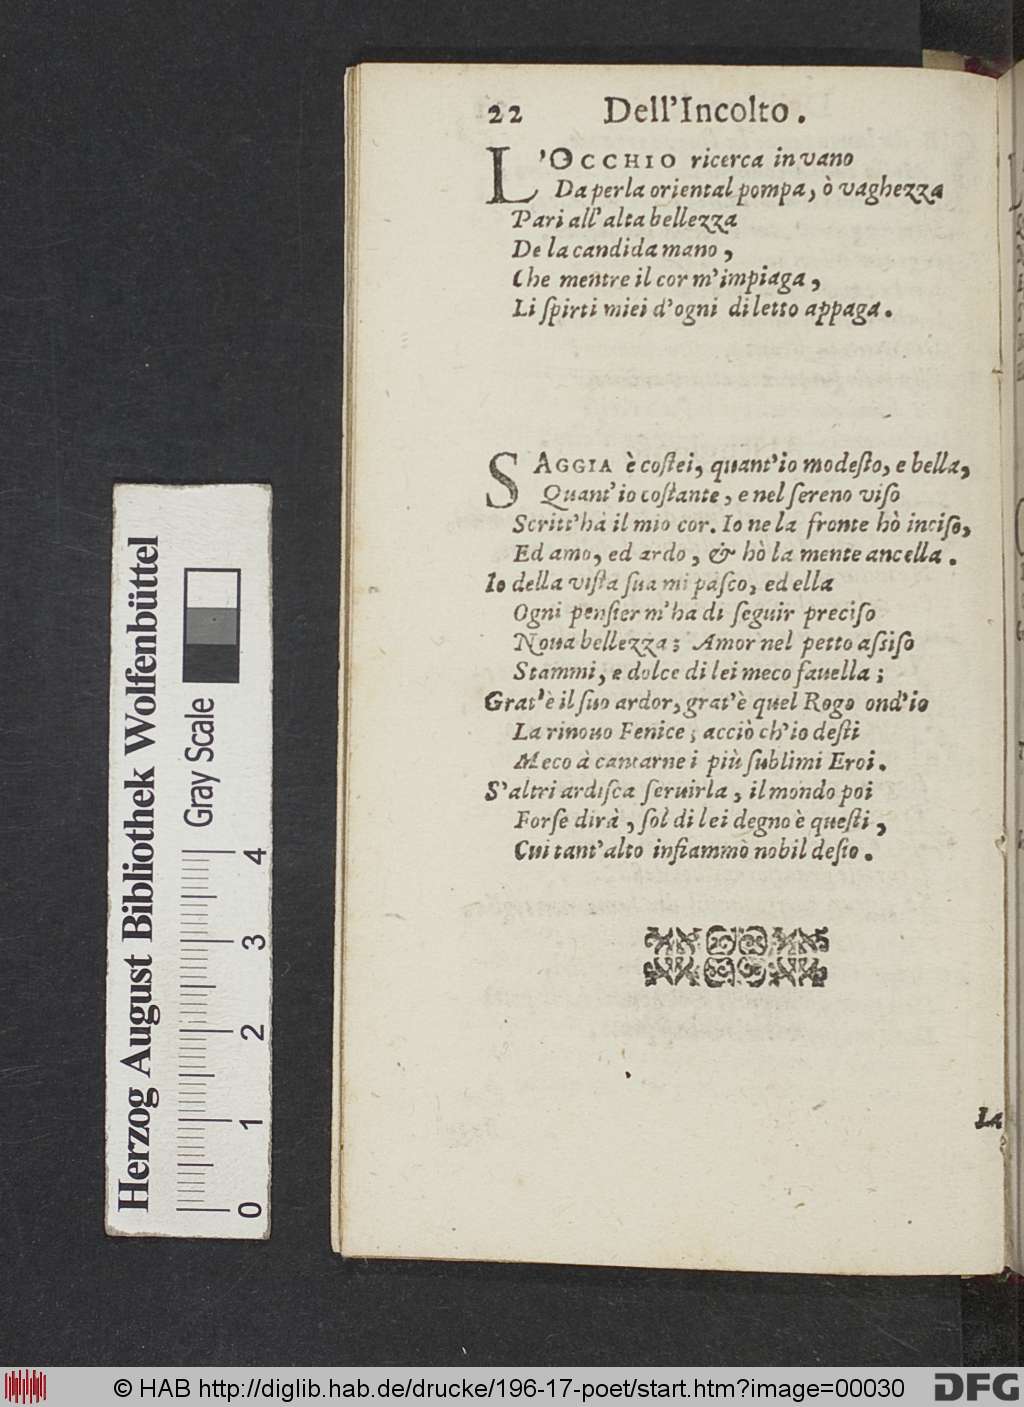 22 Dell'Incolto.
L'OCCHIO ricerca in vano
Da perla oriental pompa, ò vaghezza
Pari all' alta bellezza
De la candida mano,
Che mentre il cor m'impiaga,
Li ſpirti miei d'ogni diletto appaga.
SAGGIA è coſtei, quant'io modeſto, e bella,
Quant'io coſtante, e nel ſereno viſo
Scritt'hà il mio cor. Io ne la fronte hò inciſo,
Ed amo, ed ardo, & hò la mente ancella.
Io della viſta ſua mi paſco, ed ella
Ogni penſier m'ha di ſeguir preciſo
Noua bellezza; Amor nel petto aſsiſo
Stammi, e dolce di lei meco fauella;
Grat'è il ſuo ardor, grat'è quel Rogo ond'io
La rinouo Fenice; acciò ch'io deſti
Meco à cantarne i più ſublimi Eroi.
S'altri ardiſca ſeruirla, il mondo poi
Forſe dirà, ſol di lei degno è queſti,
Cui tant'alto infiammò nobil deſio.
La
Herzog August Bibliothek Wolfenbüttel
Gray Scale
0 1 2 3 4
© HAB http://diglib.hab.de/drucke/196-17-poet/start.htm?image=00030
DFG